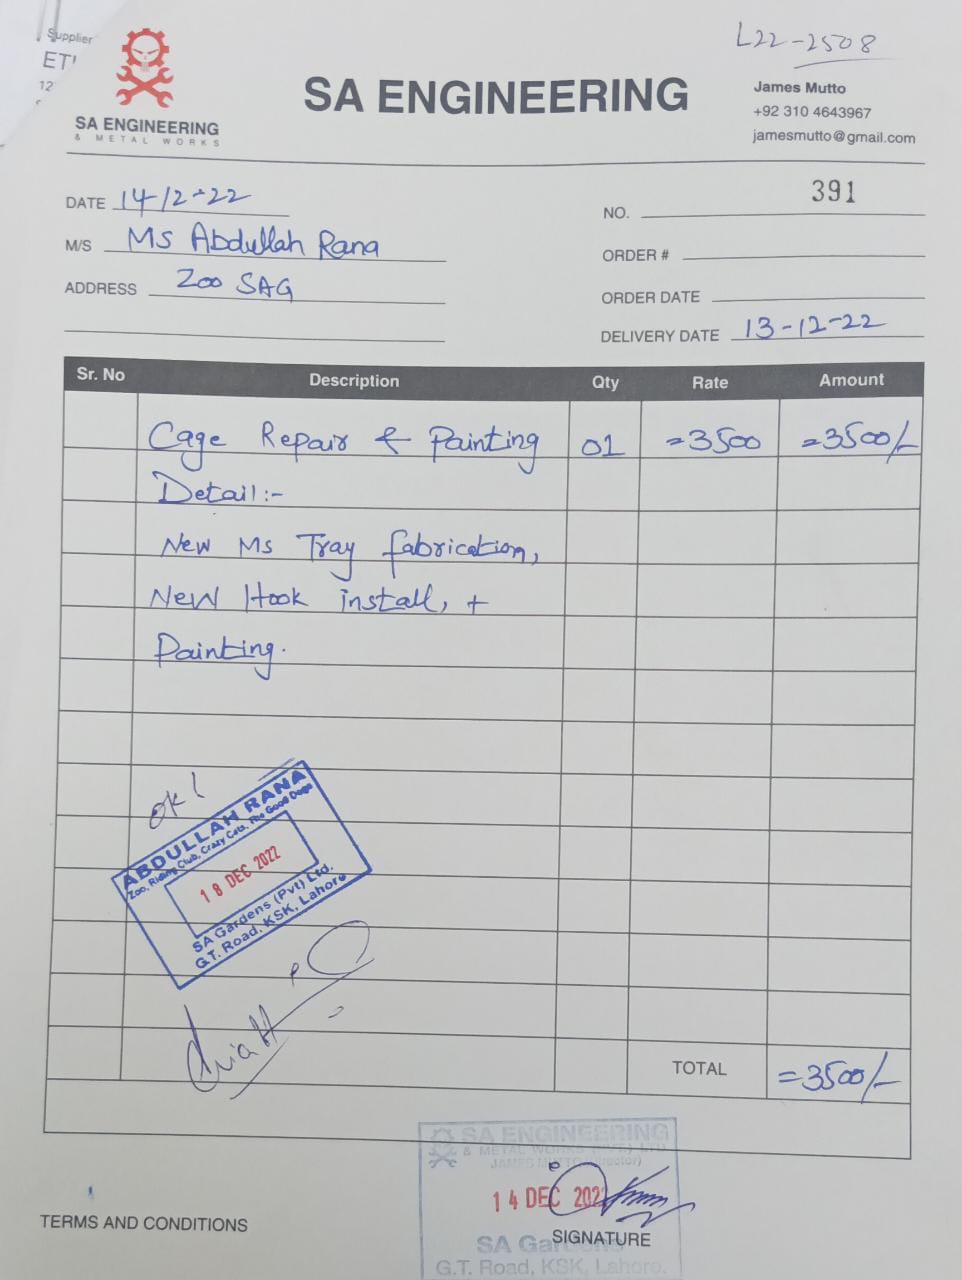 Supplier
12
L22-2508
SA ENGINEERING
& METAL WORKS
SA ENGINEERING
James Mutto
+92 310 4643967
jamesmutto@gmail.com
DATE 14-12-22
391
NO.
M/S Ms Abdullah Rana
ORDER #
ADDRESS Zoo SAG
ORDER DATE
DELIVERY DATE 13-12-22
Sr. No Description Qty Rate Amount
Cage Repair & Painting 01 =3500 =3500/-
Detail:-
New Ms Tray fabrication,
New Hook install, +
Painting.
ok!
ABDULLAH RANA
Zoo, Riding Club, Crazy Cats, The Good Dogs
18 DEC 2022
SA Gardens (Pvt) Ltd.
G.T. Road, KSK, Lahore
TOTAL =3500/-
SA ENGINEERING
& METAL WORKS (PVT) LTD
JAMES MUTTO (Director)
14 DEC 202
TERMS AND CONDITIONS
SIGNATURE
SA Gardens
G.T. Road, KSK, Lahore.